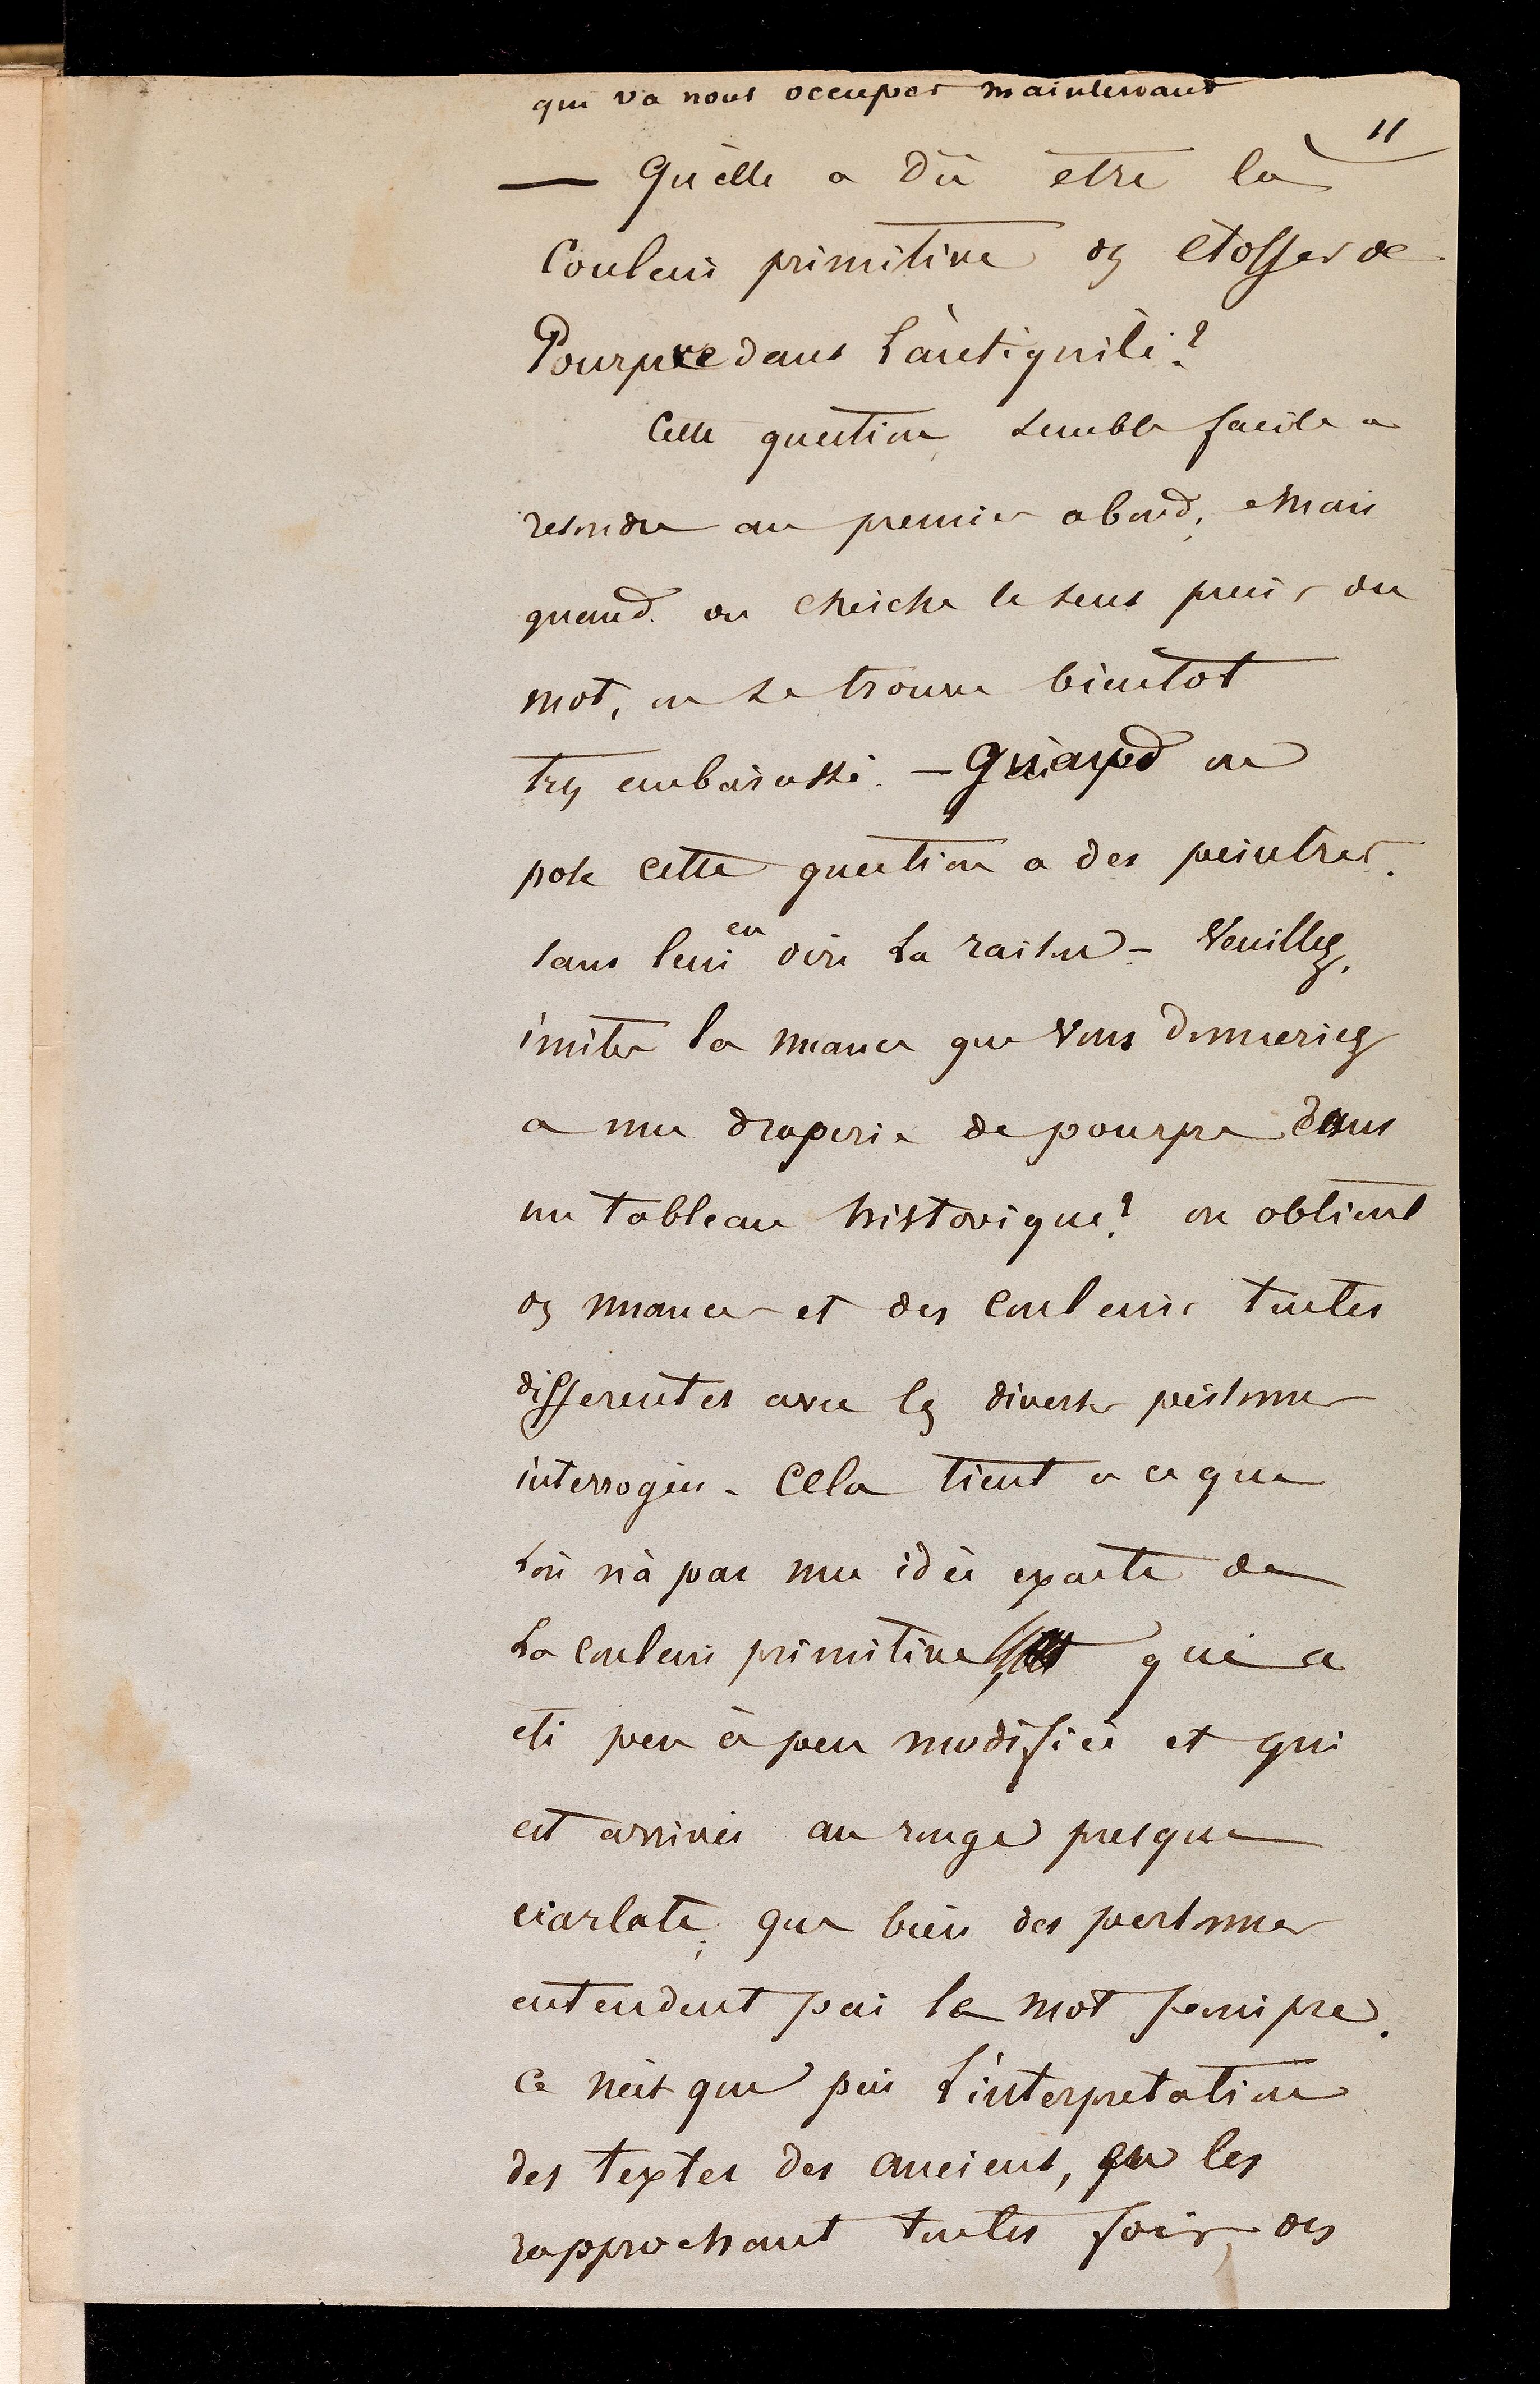 qui va nous occuper maintenant
11
— Qu'elle a Dû etre la
Couleur primitive des étoffes de
Pourpre dans L'antiquité?
Cette question semble facile a
resoudre au premier abord, Mais
quand on cherche le sens precis du
mot, on se trouve bientot
tres embarassé. — Quand on
pose cette question a des peintres.
sans leur en dire La raison — Veuillez,
imiter la nuance que Vous donneriez
a une draperie de pourpre dans
un tableau historique? on obtient
des nuances et des couleurs toutes
differentes avec les diverses personnes
interrogées. Cela tient a ce que
L'on n'a pas une idée exacte de
La couleur primitive qui a
eté peu à peu modifiée et qui
est arrivée au rouge presque
ecarlate, que bien des personnes
entendent par le mot pourpre.
Ce n'est que par L'interpretation
des textes des anciens, en les
rapprochant toutes fois, des